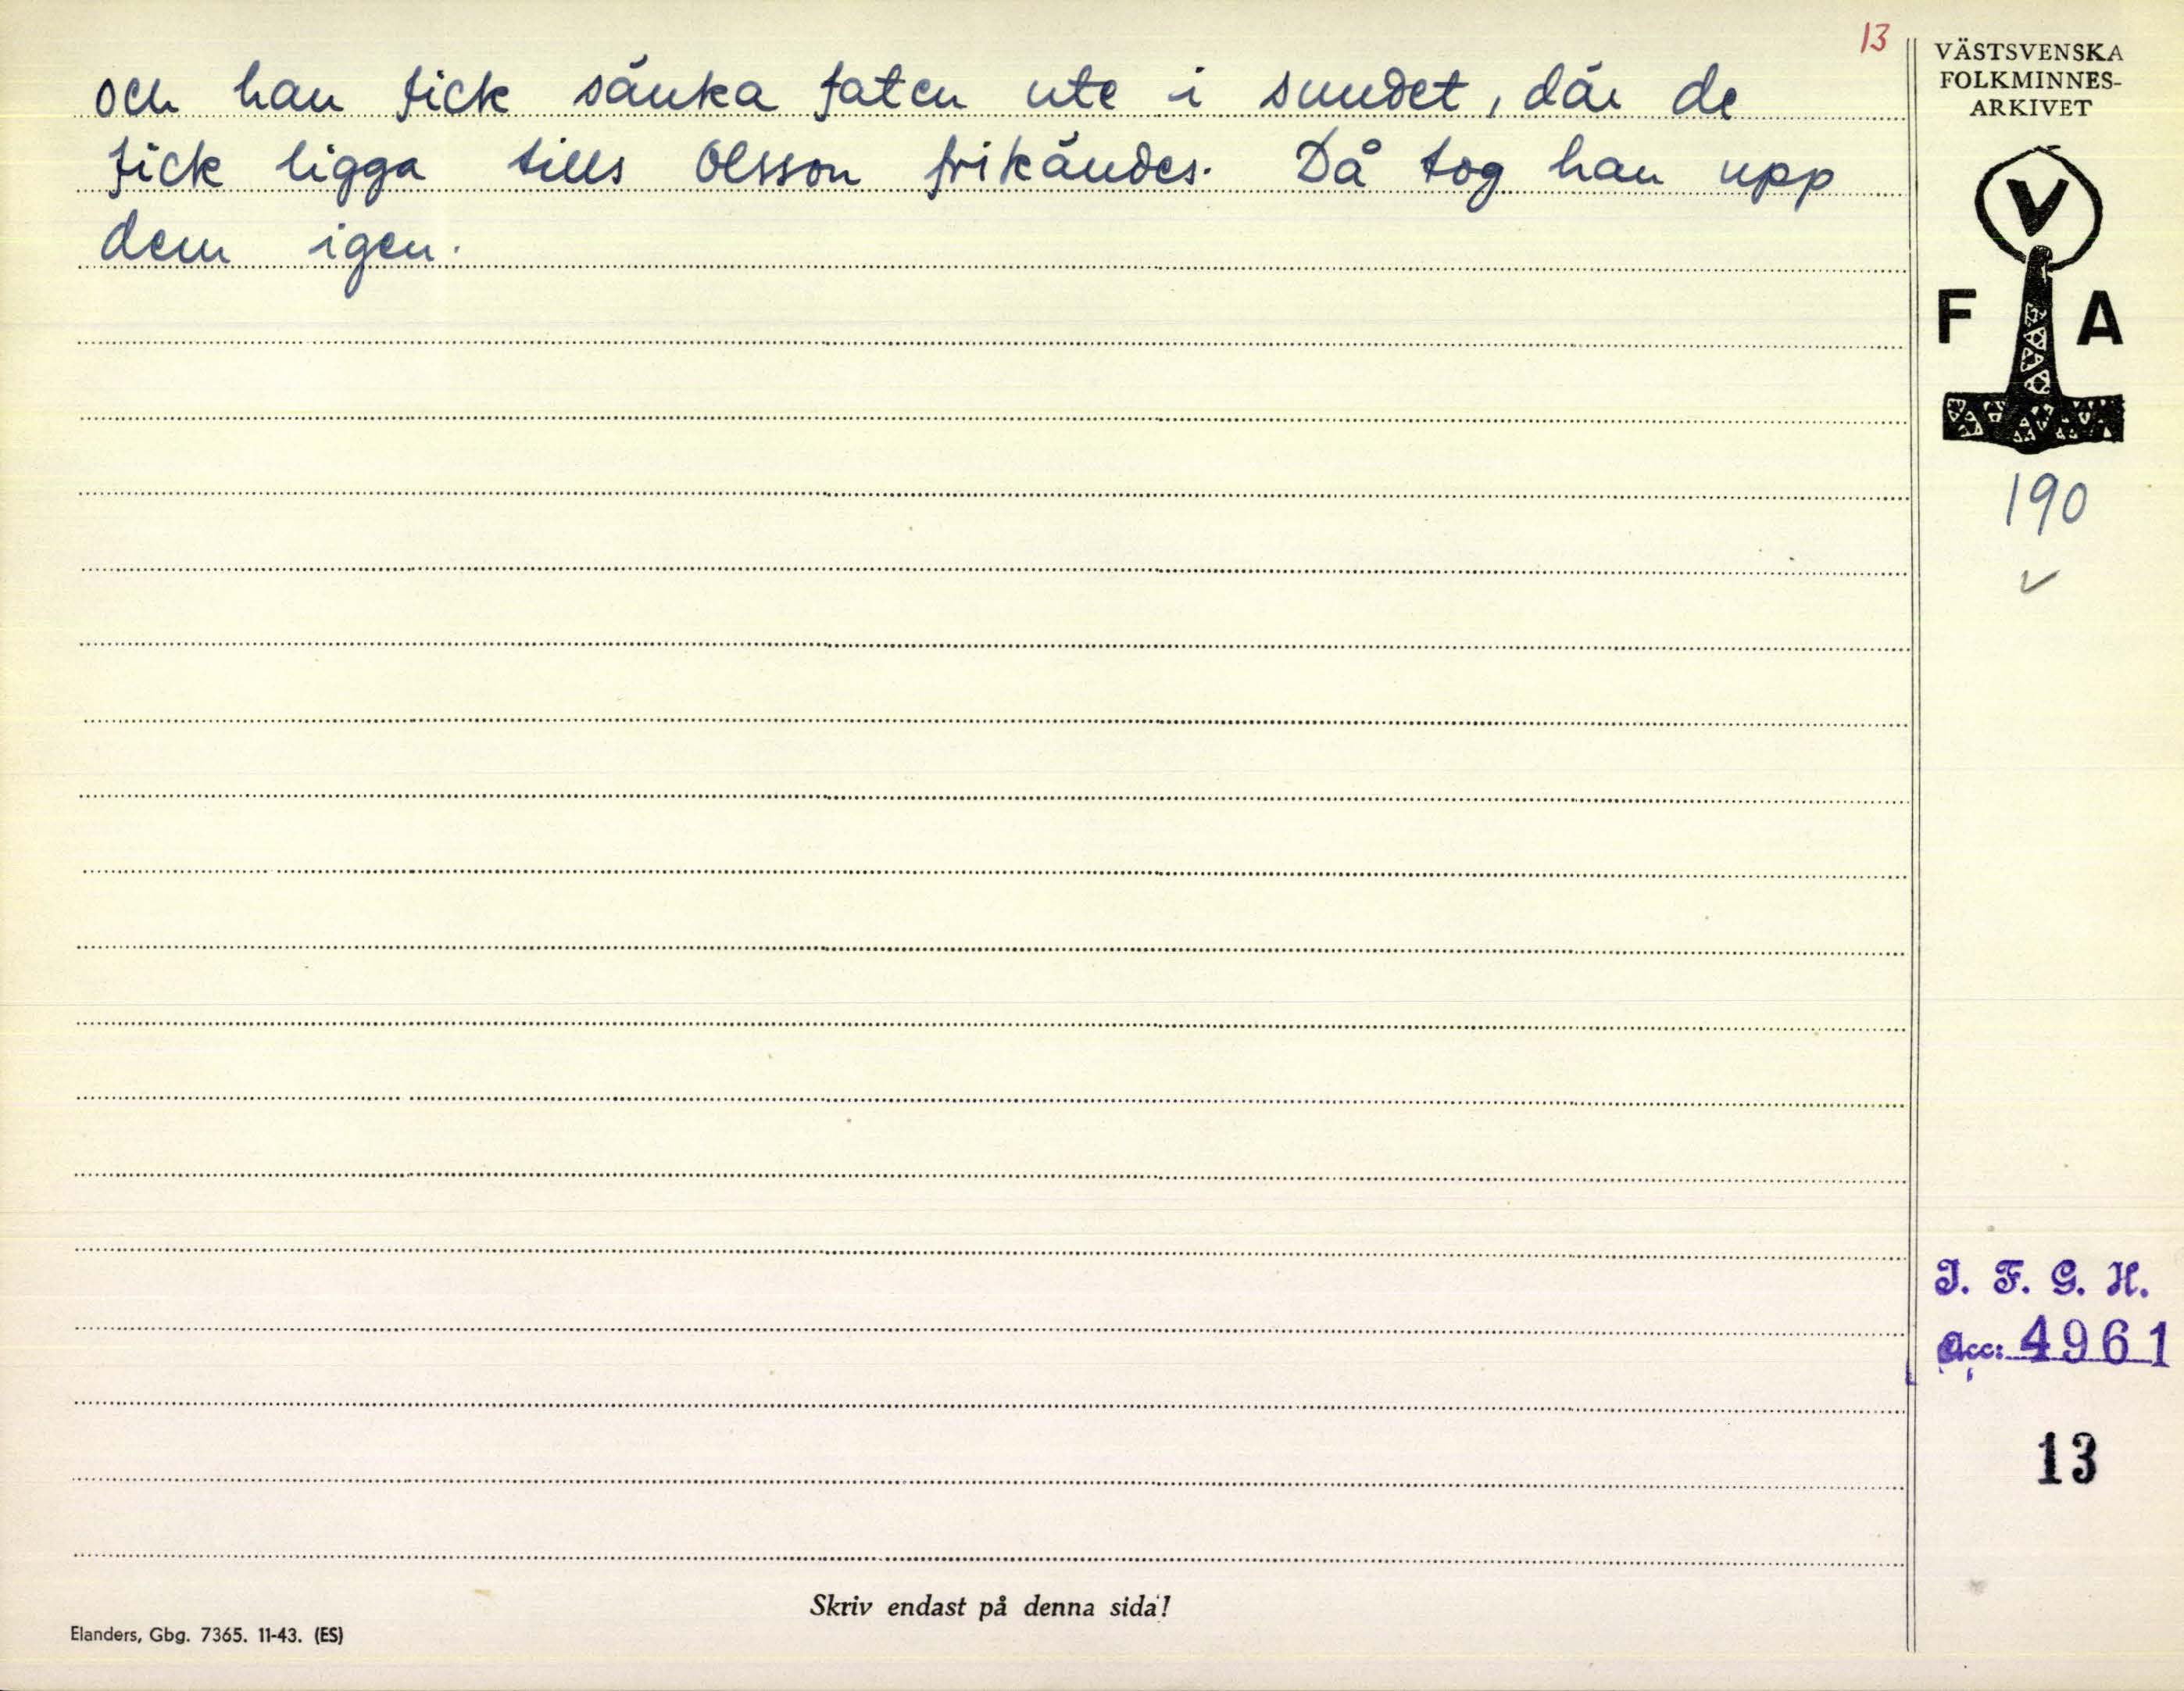 13
och han fick sänka faten ute i sundet, där de
fick ligga tills Olsson frikändes. Då tog han upp
dem igen.
VÄSTSVENSKA
FOLKMINNES-
ARKIVET
V
F A
190
I. F. G. H.
Acc: 4961
13
Skriv endast på denna sida!
Elanders, Gbg. 7365. 11-43. (ES)